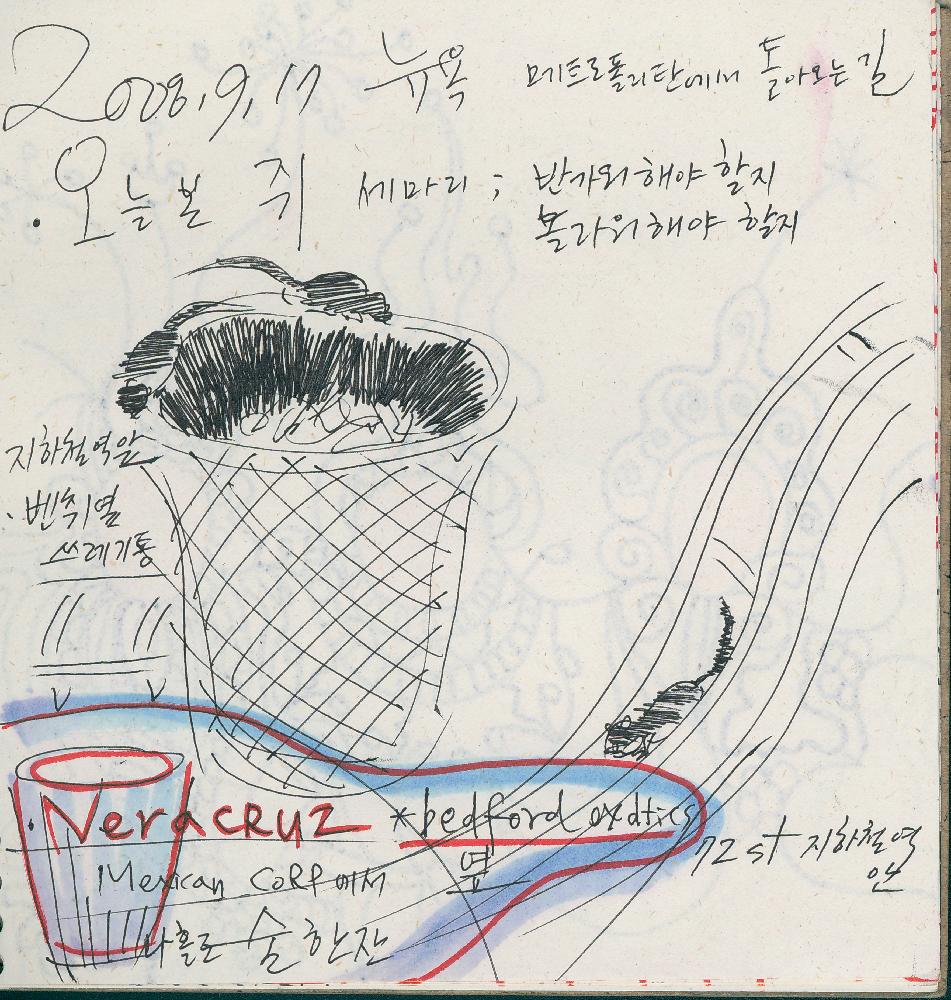 2008, 9, 17 뉴욕 메트로폴리탄에서 돌아오는 길
· 오늘 본 쥐 세마리 ; 반가워해야 할지
놀라워해야 할지
지하철역앞
· 벤취옆
쓰레기통
· Veracruz *bedford exotics
옆
Mexican CORP에서
나홀로 술 한잔
72 st 지하철역
안